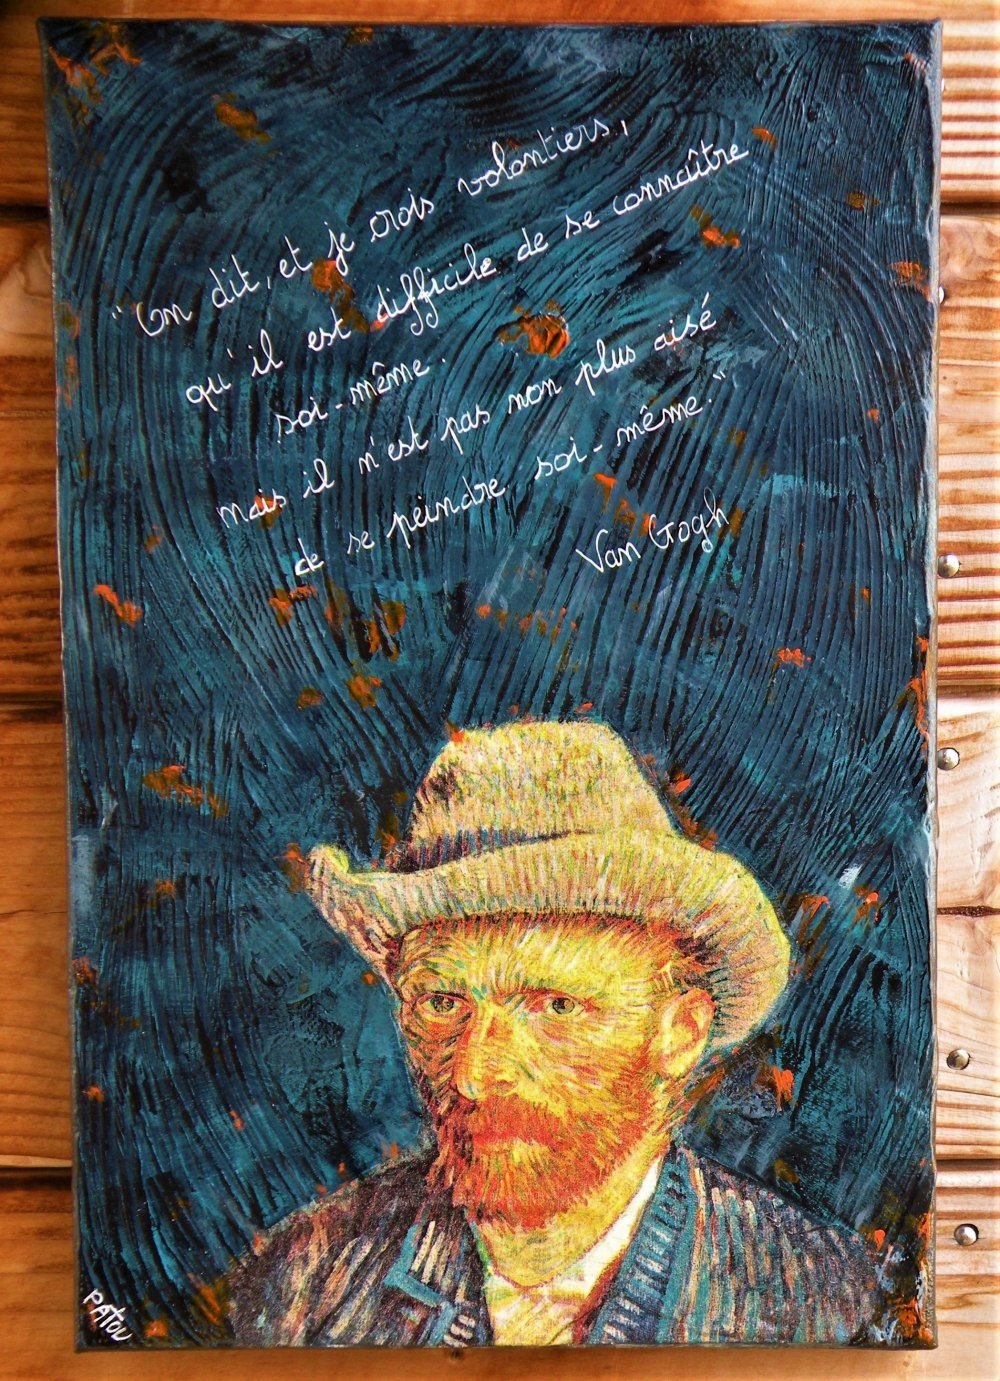 "On dit, et je crois volontiers,
qu'il est difficile de se connaître
soi-même.
mais il n'est pas non plus aisé
de se peindre soi-même."
Van Gogh
PATOU